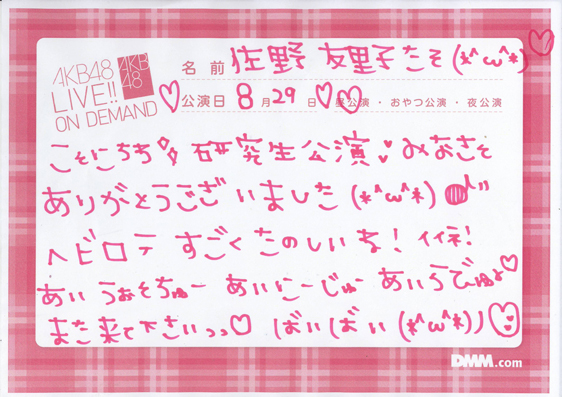 AKB48
LIVE!!
ON DEMAND
AKB
48
名前 佐野 友里子たそ(*^ω^*)♡
♡公演日 8月29日♡♡昼公演・おやつ公演・夜公演
こそにちち 研究生公演 みなさそ
ありがとうございました(*^ω^*)
ヘビロテ すごくたのしいな! イイネ!
あい うぉそちゅー あいにーじゅー あいらびゅ♡
また来て下さいっっ♡ ばいばい(*^ω^*))♡
DMM.com